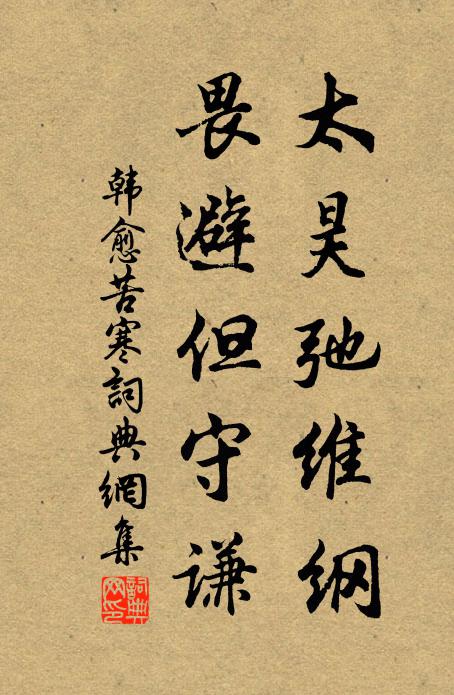 太昊弛维纲
畏避但守谦
韩愈苦寒詞典網集
詞典
网印